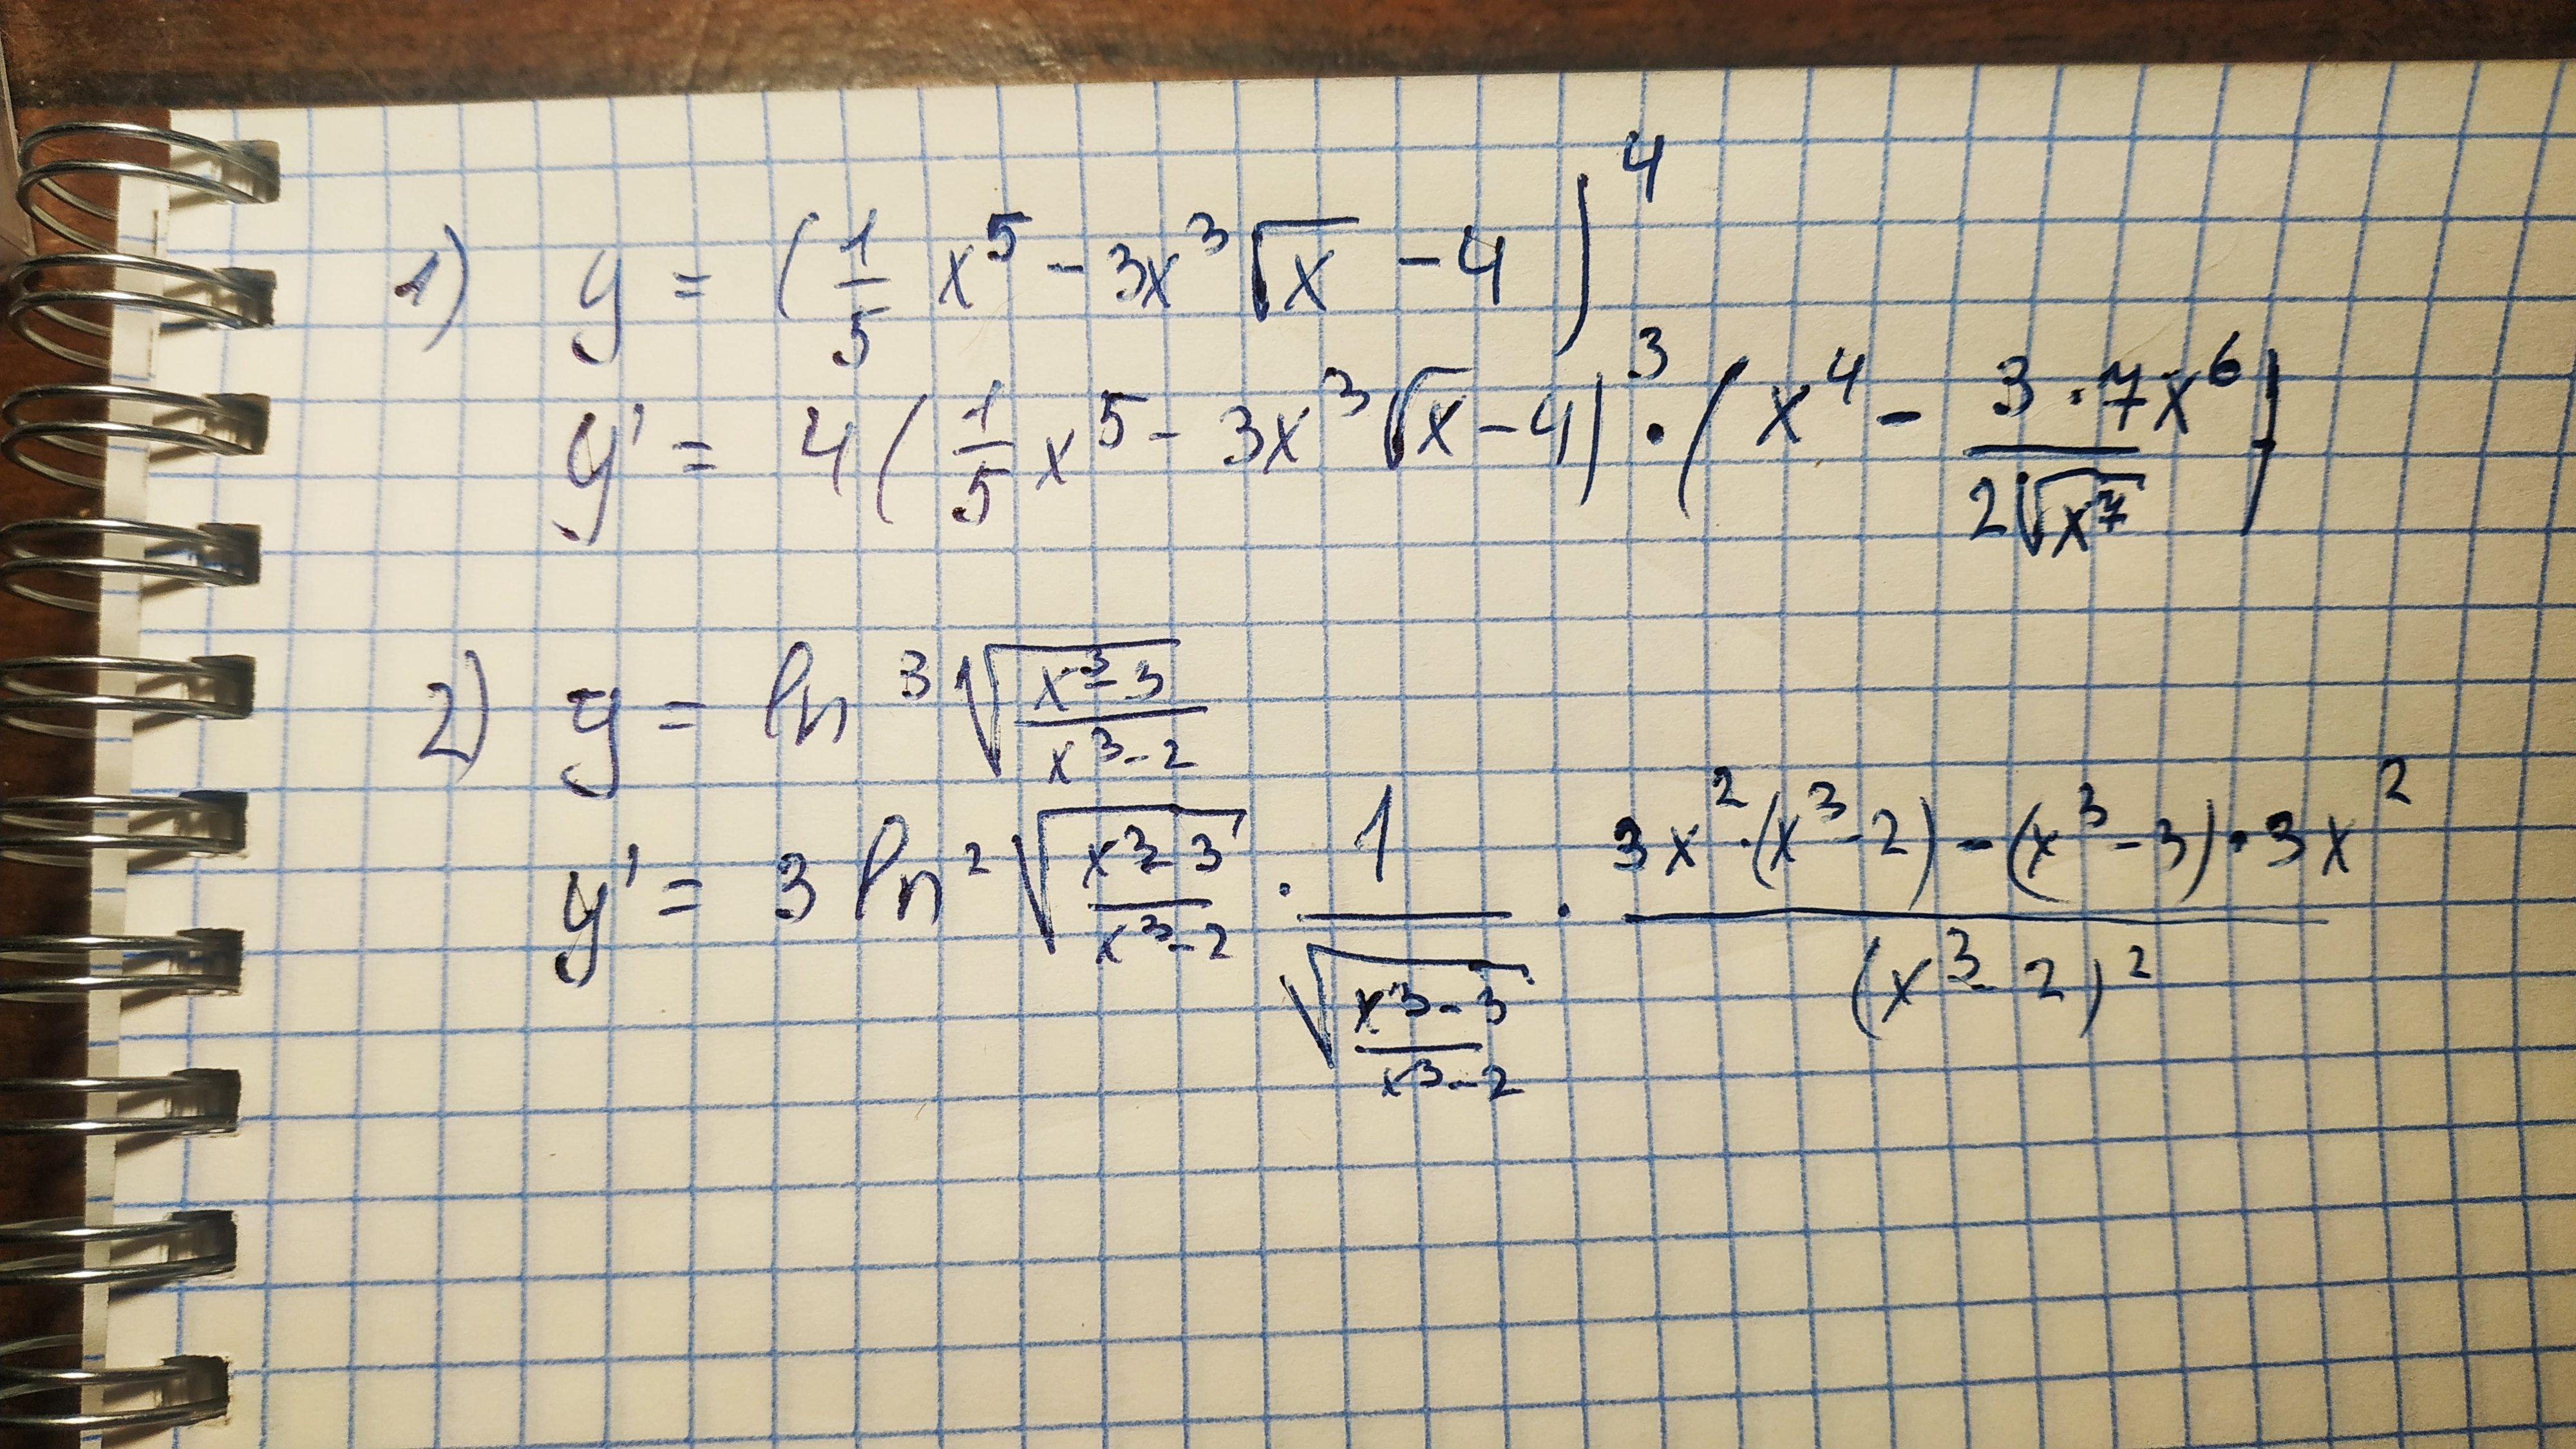 1) y = (1/5 x⁵ - 3x³√x - 4)⁴
y' = 4(1/5 x⁵ - 3x³√x - 4)³ · (x⁴ - 3·7x⁶/2√x⁷)
2) y = ln³√(x³-3/x³-2)
y' = 3 ln²√(x³-3/x³-2) · 1/√(x³-3/x³-2) · 3x²·(x³-2)-(x³-3)·3x²/(x³-2)²